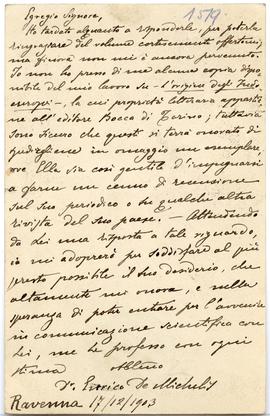 1579
Egregio Signore,
Ho tardato alquanto a rispondere, per poterla
ringraziare del volume cortesemente offertomi,
ma finora non mi è ancora pervenuto.
Io non ho presso di me alcuna copia dispo-
nibile del mio lavoro su L'origine degli Indo-
europei -, la cui proprietà letteraria appartie-
ne all'editore Bocca di Torino; tuttavia
sono sicuro che questi si terrà onorato di
spedirgliene in omaggio un esemplare,
ove Ella sia così gentile d'impegnarsi
a farne un cenno di recensione
sul suo periodico o su qualche altra
rivista del suo paese. - Attendendo
da Lei una risposta a tale riguardo,
io mi adoprerò per soddisfare al più
presto possibile il suo desiderio, che
altamente mi onora, e nella
speranza di poter entrare per l'avvenire
in comunicazione scientifica con
Lei, me le professo con ogni
stima
Dr. Enrico De Michelis
Ravenna 17/12/1903